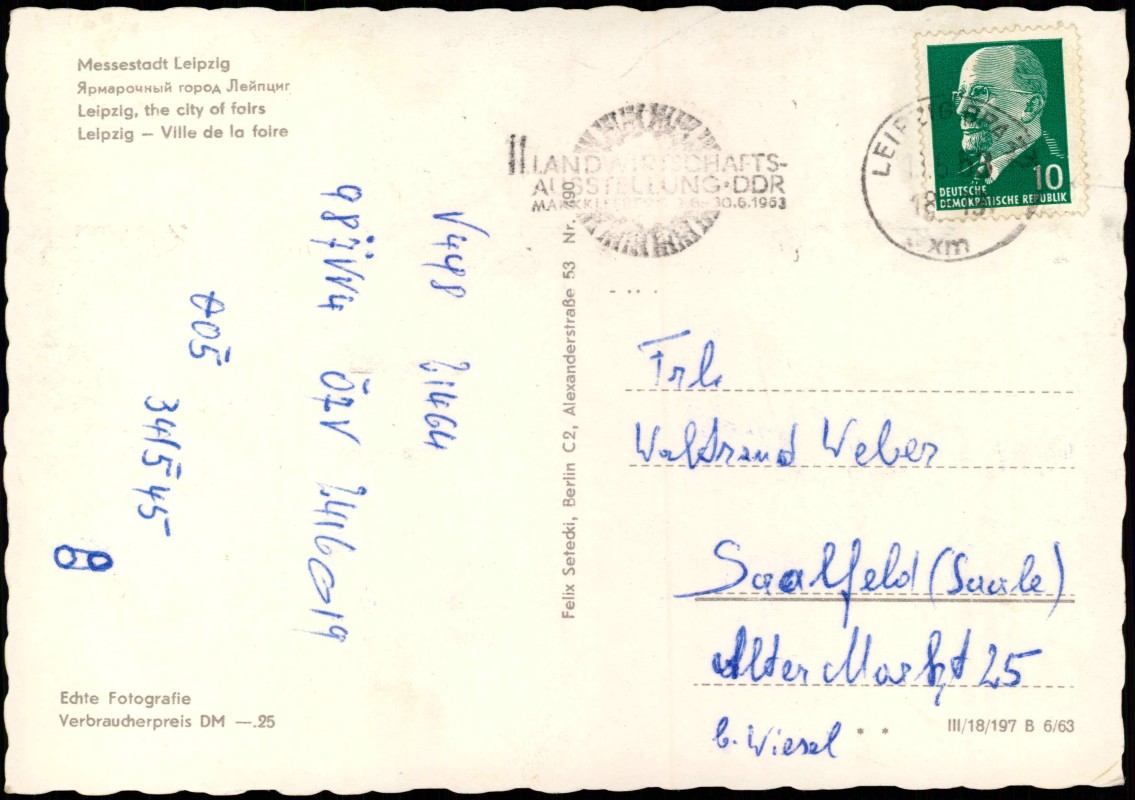 Messestadt Leipzig
Ярмарочный город Лейпциг
Leipzig, the city of fairs
Leipzig – Ville de la foire
LANDWIRTSCHAFTS-
AUSSTELLUNG·DDR
30.6.1963
LEIPZIG
18
xm
10
DEUTSCHE
DEMOKRATISCHE REPUBLIK
Felix Setecki, Berlin C2, Alexanderstraße 53 Nr. 490
Frl.
Waltraud Weber
Saalfeld (Saale)
Alter Markt 25
b. Wiesel
005
34/545
8
Echte Fotografie
Verbraucherpreis DM —.25
III/18/197 B 6/63